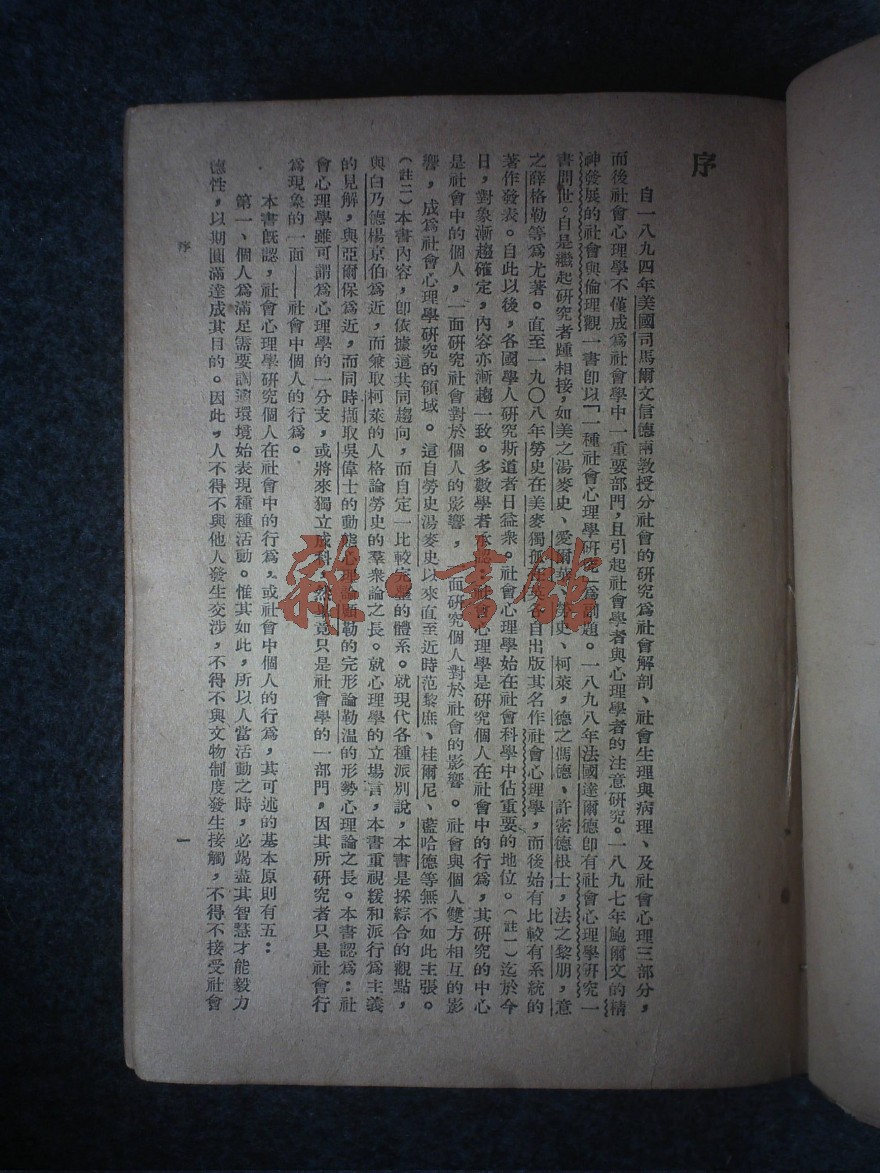 序
自一八九四年美國司馬爾文信德兩教授分社會的研究爲社會解剖、社會生理與病理、及社會心理三部分，
而後社會心理學不僅成爲社會學中一重要部門，且引起社會學者與心理學者的注意研究。一八九七年鮑爾文的精
神發展的社會與倫理觀一書卽以「一種社會心理學研究」爲副題。一八九八年法國達爾德卽有社會心理學研究一
書問世。自是繼起研究者踵相接，如美之湯麥史、愛爾華、勞史、柯萊，德之馮德、許密德根士，法之黎朋，意
之薛格勒等爲尤著。直至一九〇八年勞史在美麥獨孤在英各自出版其名作社會心理學，而後始有比較有系統的
著作發表。自此以後，各國學人研究斯道者日益衆。社會心理學始在社會科學中佔重要的地位。（註一）迄於今
日，對象漸趨確定，內容亦漸趨一致。多數學者承認：社會心理學是研究個人在社會中的行爲，其研究的中心
是社會中的個人，一面研究社會對於個人的影響，一面研究個人對於社會的影響。社會與個人雙方相互的影
響，成爲社會心理學研究的領域。這自勞史湯麥史以來直至近時范黎庶、桂爾尼、藍哈德等無不如此主張。
（註二）本書內容，卽依據這共同趨向，而自定一比較完整的體系。就現代各種派別說，本書是採綜合的觀點，
與白乃德楊京伯爲近，而兼取柯萊的人格論勞史的羣衆論之長。就心理學的立場言，本書重視緩和派行爲主義
的見解，與亞爾保爲近，而同時擷取吳偉士的動態心理論 勒的完形論勒溫的形勢心理論之長。本書認爲：社
會心理學雖可謂爲心理學的一分支，或將來獨立成科，然 竟只是社會學的一部門，因其所研究者只是社會行
爲現象的一面——社會中個人的行爲。
本書旣認，社會心理學研究個人在社會中的行爲，或社會中個人的行爲，其可述的基本原則有五：
第一、個人爲滿足需要調適環境始表現種種活動。惟其如此，所以人當活動之時，必竭盡其智慧才能毅力
德性，以期圓滿達成其目的。因此，人不得不與他人發生交涉，不得不與文物制度發生接觸，不得不接受社會
序
一
雜·書館